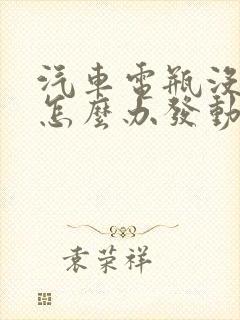 汽車電瓶沒
怎麼办發動
袁荣祥